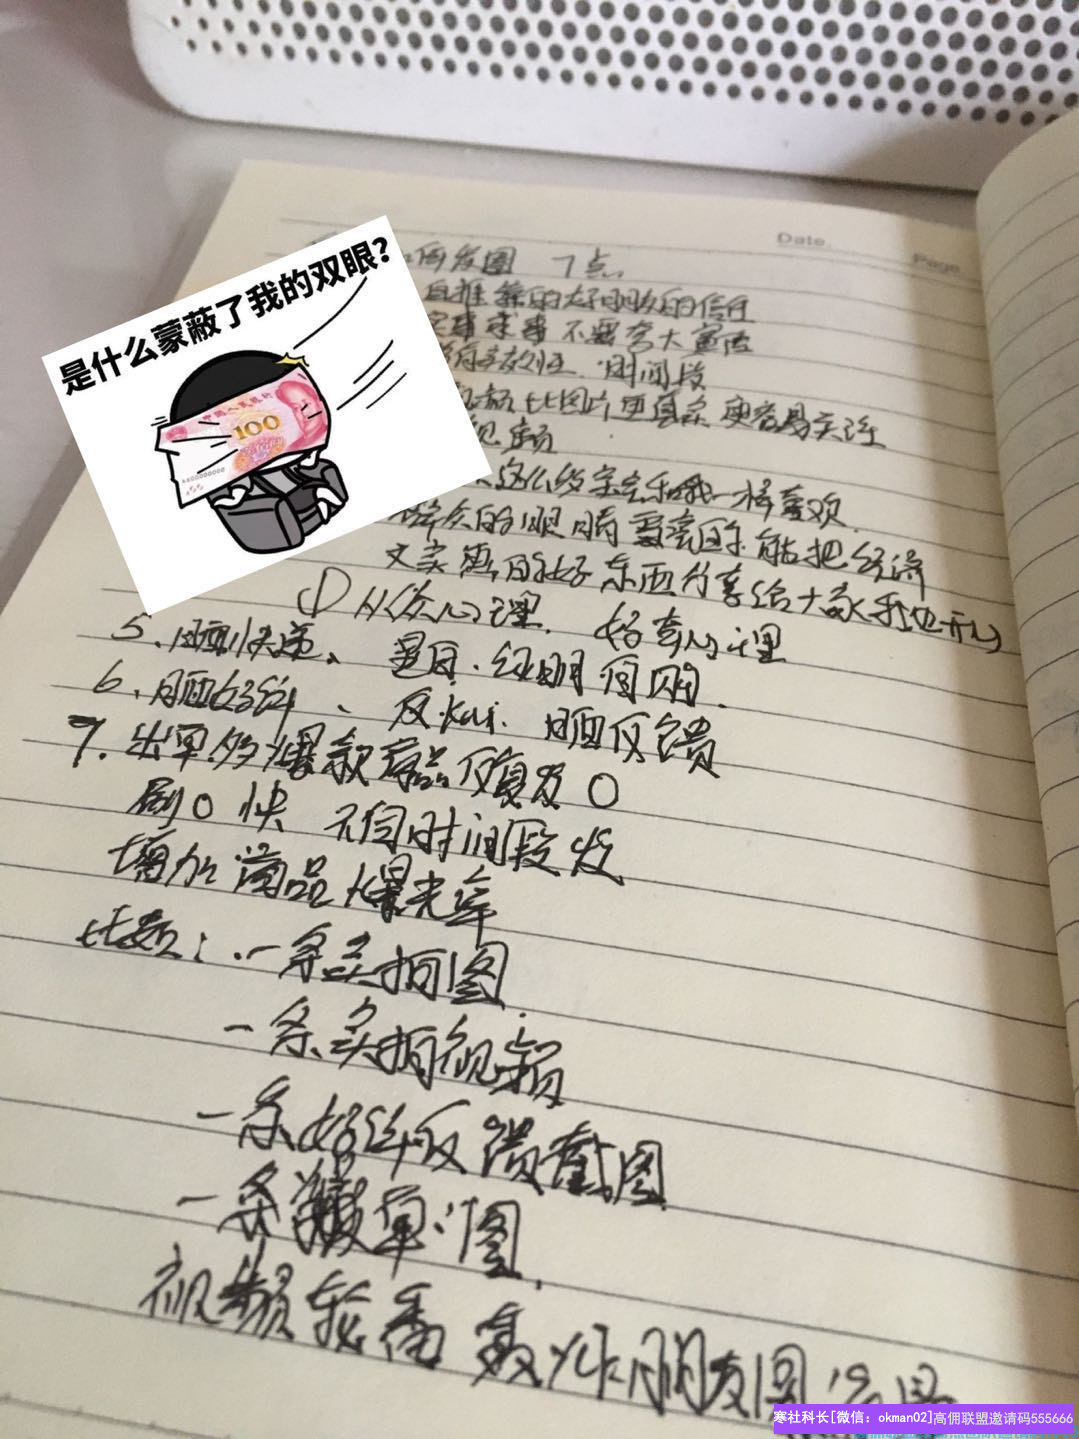 Date.
Page
是什么蒙蔽了我的双眼？
中国人民银行
100
何发圈 7点
的信任
求事 不要夸大宣传
时间段
比图片更真实 更容易关注
视频
这么多宝宝和我一样喜欢
群众的眼睛雪亮的 能把经济
实惠的好东西分享给大家我也开心
① 从众心理. 好奇心理
5、晒快递、 量自. 证明
6、晒好评、 反kui. 晒反馈
7. 出单多爆款商品反复发〇
刷〇快 不同时间段发
增加商品爆光率
比如: 一条实拍图
一条实拍视频
一条好评反馈截图
一条 单图
视频轮番轰炸朋友圈
寒社科长[微信：okman02]高佣联盟邀请码555666